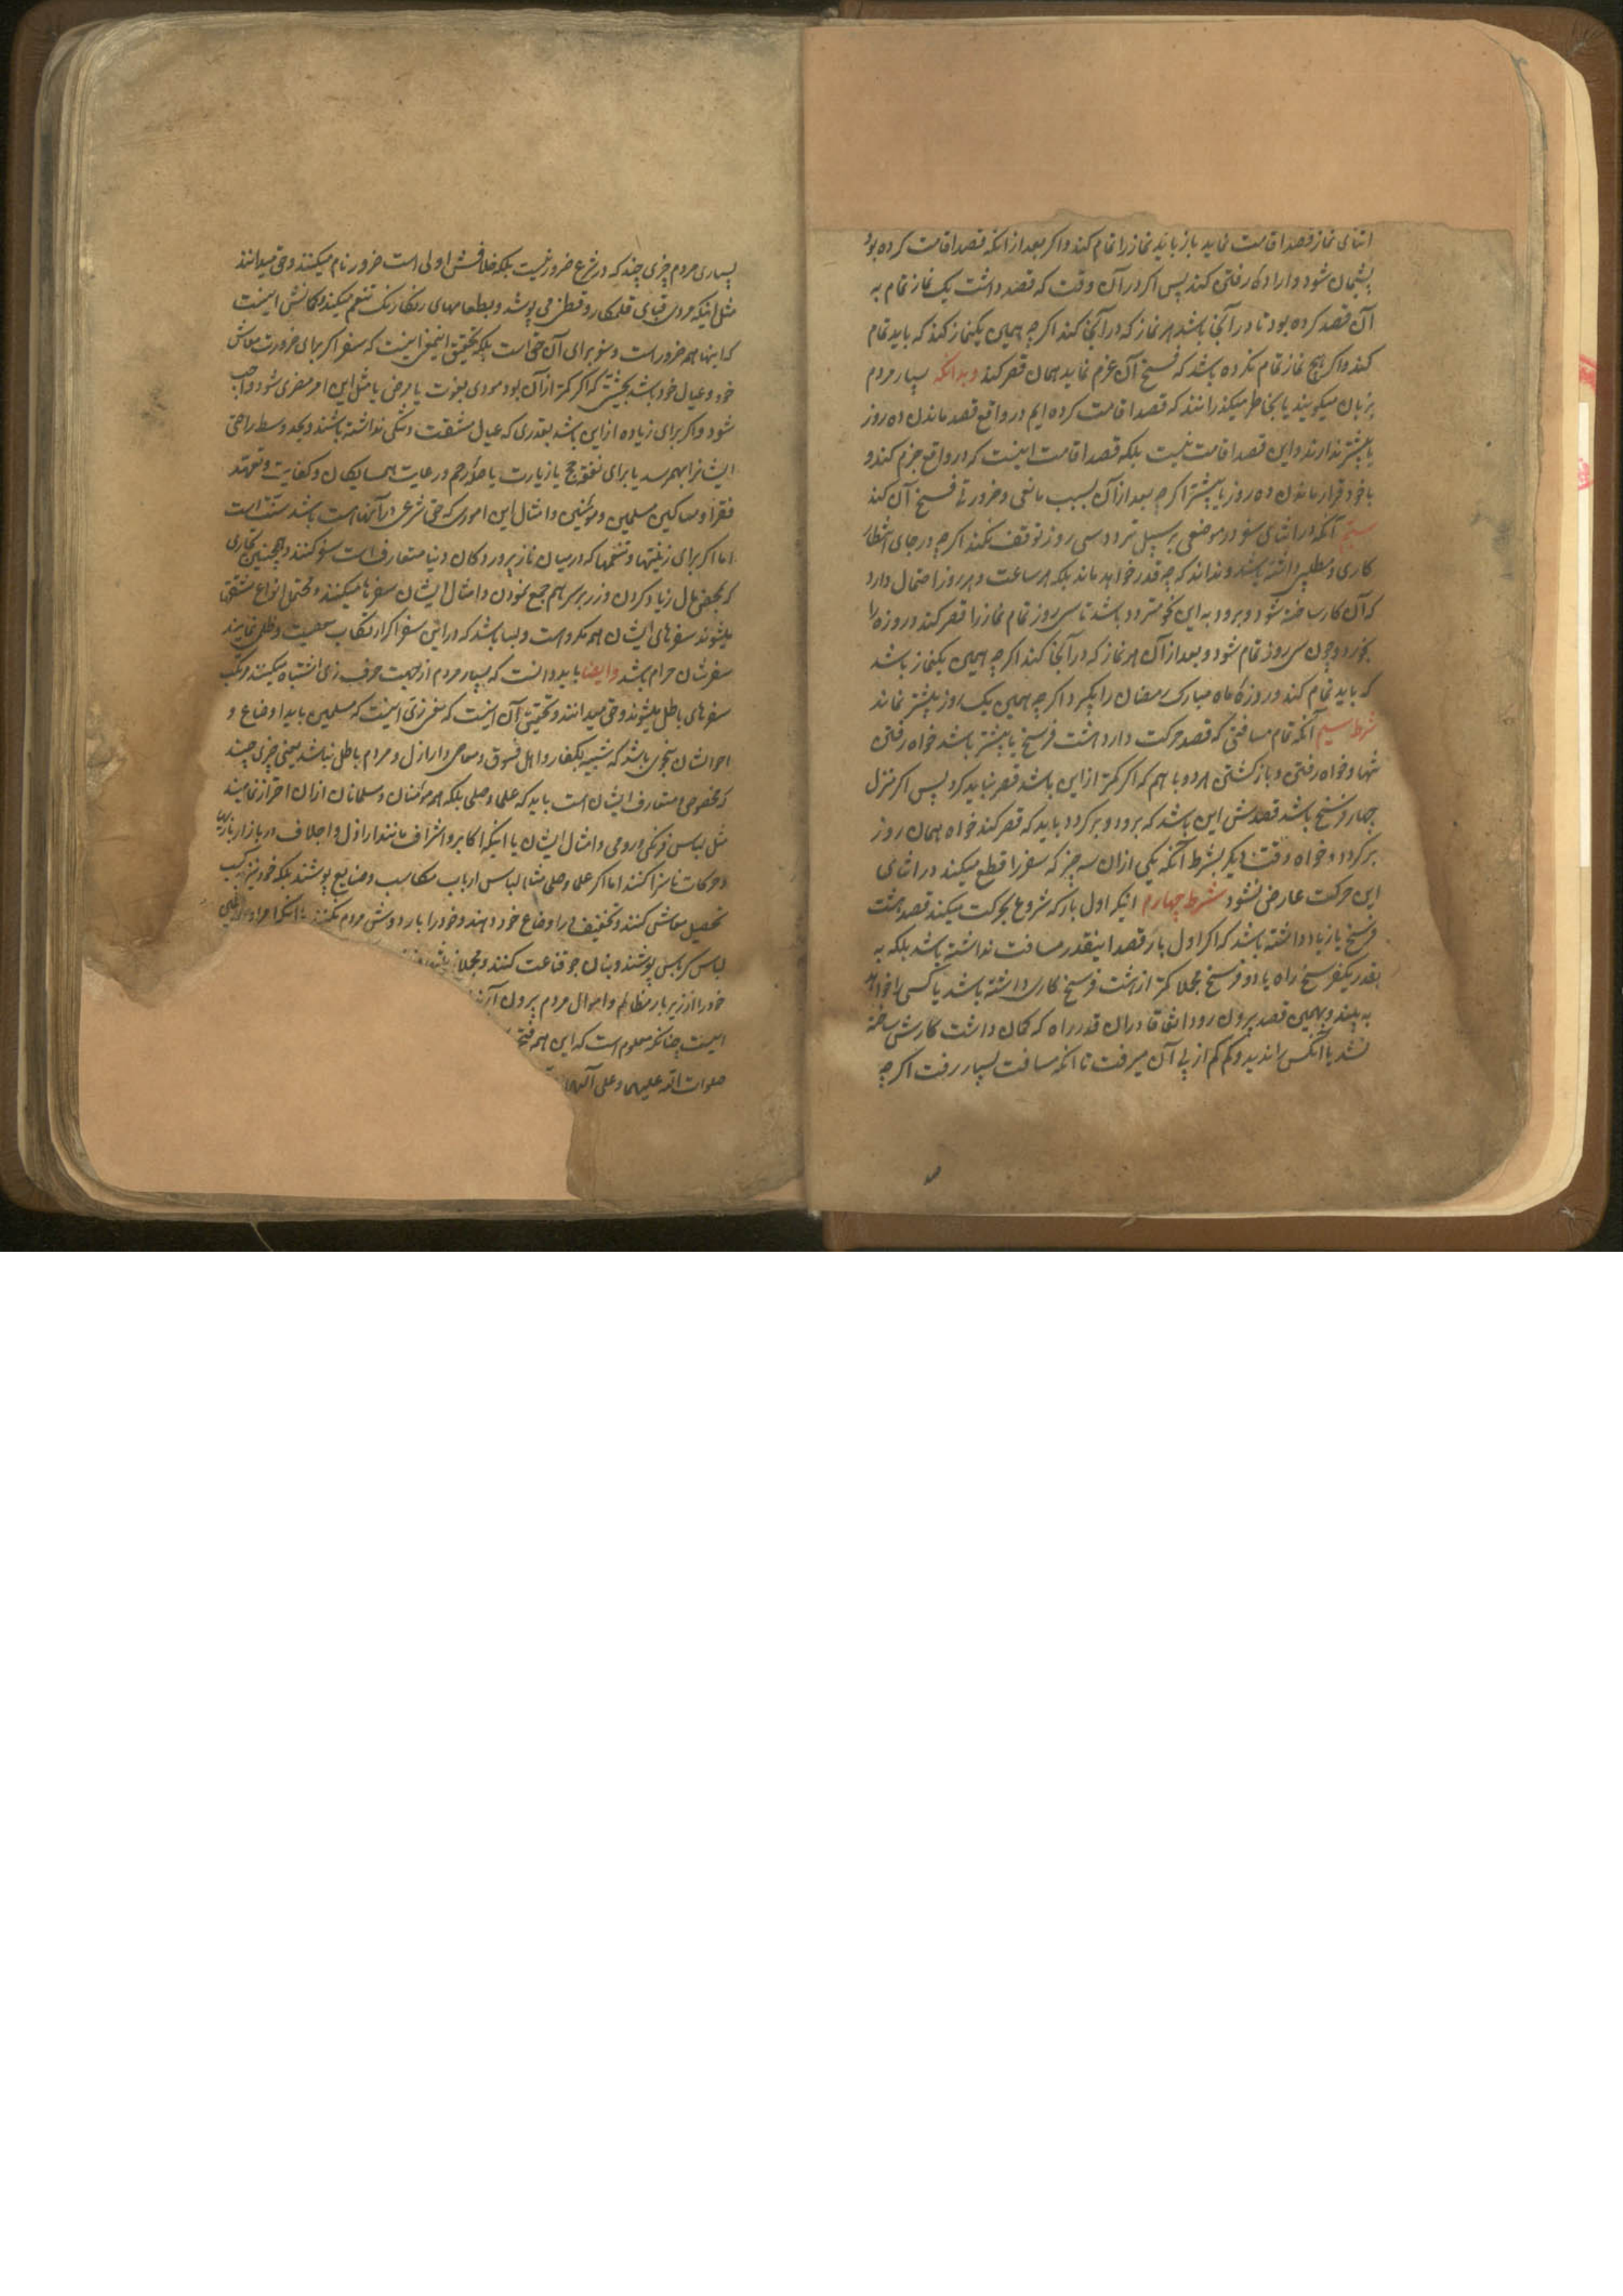 اثنای نماز قصد اقامت نماید باز باید نماز را تمام کند و اگر بعد از انکه قصد اقامت کرده بود
پشیمان شود و اراده رفتن کند پس اکر در آن وقت که قصد داشت یک نماز تمام به
آن قصد کرده بود تا در آنجا باشد هر نماز که در آنجا کند اکرچه همین یکنماز کند که باید تمام
کند و اکر هیچ نماز تمام نکرده باشد که فسخ آن عزم نماید همان قصر کند و بدانکه بسیار مردم
بزبان میکویند یا بخاطر میکذرانند که قصد اقامت کرده ایم در واقع قصد ماندن ده روز
یا بیشتر ندارند و این قصد اقامت نیست بلکه قصد اقامت اینست که در واقع جزم کند و
با خود قرار ماندن ده روز یا بیشتر اکرچه بعد از آن بسبب مانعی و ضرورتی فسخ آن کند
آنکه در اثنای سفر در موضعی بر سبیل تردد سی روز توقف نکند اکرچه در جای انتظار
کاری و مطلبی داشته باشد و نداند که چه قدر خواهد ماند بلکه هر ساعت و هر روز احتمال دارد
که آن کار ساخته شود و برود به این نحو متردد باشد تا سی روز تمام نماز را قصر کند و روزه را
بخورد و چون سی روز تمام شود و بعد از آن هر نماز که در آنجا کند اکرچه همین یکنماز باشد
که باید تمام کند و روزهٔ ماه مبارک رمضان را بکیرد اکرچه همین یک روز بیشتر نماند
شرط سیم آنکه تمام مسافتی که قصد حرکت دارد هشت فرسخ یا بیشتر باشد خواه رفتن
تنها و خواه رفتن و باز کشتن هر دو با هم که اکر کمتر از این باشد قصر نباید کرد پس اکر منزل
چهار فرسخ باشد قصدش این باشد که برود و بر کردد باید که قصر کند خواه همان روز
بر کردد و خواه وقت دیکر بشرط آنکه یکی از ان سه چیز که سفر را قطع میکند در اثنای
این حرکت عارض نشود شرط چهارم اینکه اول بار که شروع بحرکت میکند قصد هشت
فرسخ یا زیاد داشته باشد که اکر اول بار قصد اینقدر مسافت نداشته باشد بلکه به
قدر یکفرسخ راه یا دو فرسخ مجملا کمتر از هشت فرسخ کاری داشته باشد یا کسی را خواهد
به بیند و بهمین قصد بیرون رود اتفاقا در ان قدر راه که کمان داشت کارش ساخته
نشد یا آنکس را ندید و کم کم از پی آن میرفت تا انکه مسافت بسیار رفت اکرچه
بسیاری مردم چیزی چند که در شرع ضرور نیست بلکه خلافش اولی است ضرور نام میکنند و حق میدانند
مثل اینکه مردی قبای قلمکار و قطنی می پوشد و بطعامهای رنکارنک تنعم میکند و کمانش اینست
که اینها همه ضرور است و سفر برای آن حق است بلکه تحقیق اینمعنی اینست که سفر اکر برای ضرورت معاش
خود و عیال خود باشد بحیثیتی که اکر کمتر از آن بود مودی بفوت یا مرض یا مثل این امر مضری شود واجب
شود و اکر برای زیاده از این باشد بقدری که عیال مشقت و تنکی نداشته باشند و بحد وسط راحتی
ایشانرا بهم رسد یا برای نفقهٔ حج یا زیارت یا صلهٔ رحم و رعایت همسایکان و کفایت و تعهد
فقرا و مساکین مسلمین و مومنین و امثال این امور که حق شرعی در آنها است باشد سنت است
اما اکر برای زینتها و تنعمها که در میان ناز پروردکان دنیا متعارف است سفر کنند و همچنین تجاری
که بمحض مال زیاد کردن و زر بر سر هم جمع نمودن و امثال ایشان سفرها میکنند و متحمل انواع مشقتها
میشوند سفرهای ایشان همه مکروه است و بسا باشد که در این سفر اکر ارتکاب معصیت و ظلمی نمایند
سفرشان حرام باشد و ایضا باید دانست که بسیار مردم از جهت حرف زی اشتباه میکنند و مرتکب
سفرهای باطل میشوند و حق میدانند و تحقیق آن اینست که معنی زی اینست که مسلمین باید اوضاع و
احوالشان بنحوی باشد که شبیه بکفار و اهل فسوق و معاصی و اراذل و مردم باطل نباشد یعنی چیزی چند
که مخصوص و متعارف ایشان است باید که علما و صلحا بلکه همه مؤمنان و مسلمانان از ان احتراز نمایند
مثل لباس فرنکی و رومی و امثال ایشان یا اینکه اکابر و اشراف مانند اراذل و اجلاف در بازار بازیها
و حرکات ناسزا کنند اما اکر علما و صلحا مثلا لباس ارباب مکاسب و صنایع پوشند بلکه خود نیز کسب
تحصیل معاش کنند و تخفیفی در اوضاع خود دهند و خود را بار دوش مردم نکنند
لباس کرباس پوشند و بنان جو قناعت کنند و مجملا
خود را از زیر بار مظالم و اموال مردم بیرون آرند
اینست چنانکه معلوم است که این همه
صلوات الله علیهم و علی آلهم